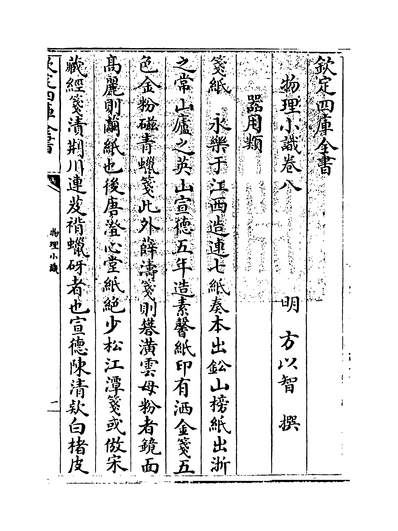 欽定四庫全書
物理小識卷八
明 方以智 撰
器用類
箋紙 永樂于江西造連七紙奏本出鉛山榜紙出浙
之常山廬之英山宣德五年造素馨紙印有洒金箋五
色金粉磁青蠟箋此外薛濤箋則礬潢雲母粉者鏡面
髙麗則繭紙也後唐澄心堂紙絶少松江潭箋或倣宋
藏經箋清荆川連芨褙蠟砑者也宣德陳清欵白楮皮
欽定四庫全書
物理小識